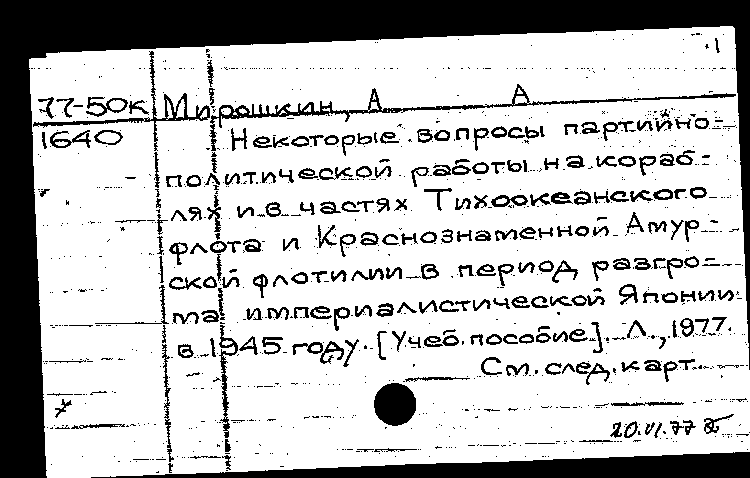 1
77-50к Мирошкин, А А
1640 Некоторые вопросы партийно-
политической работы на кораб-
лях и в частях Тихоокеанского
флота и Краснознаменной Амур-
ской флотилии в период разгро-
ма империалистической Японии
в 1945 году. [Учеб. пособие]. Л., 1977.
См. след. карт.
20.VI.77